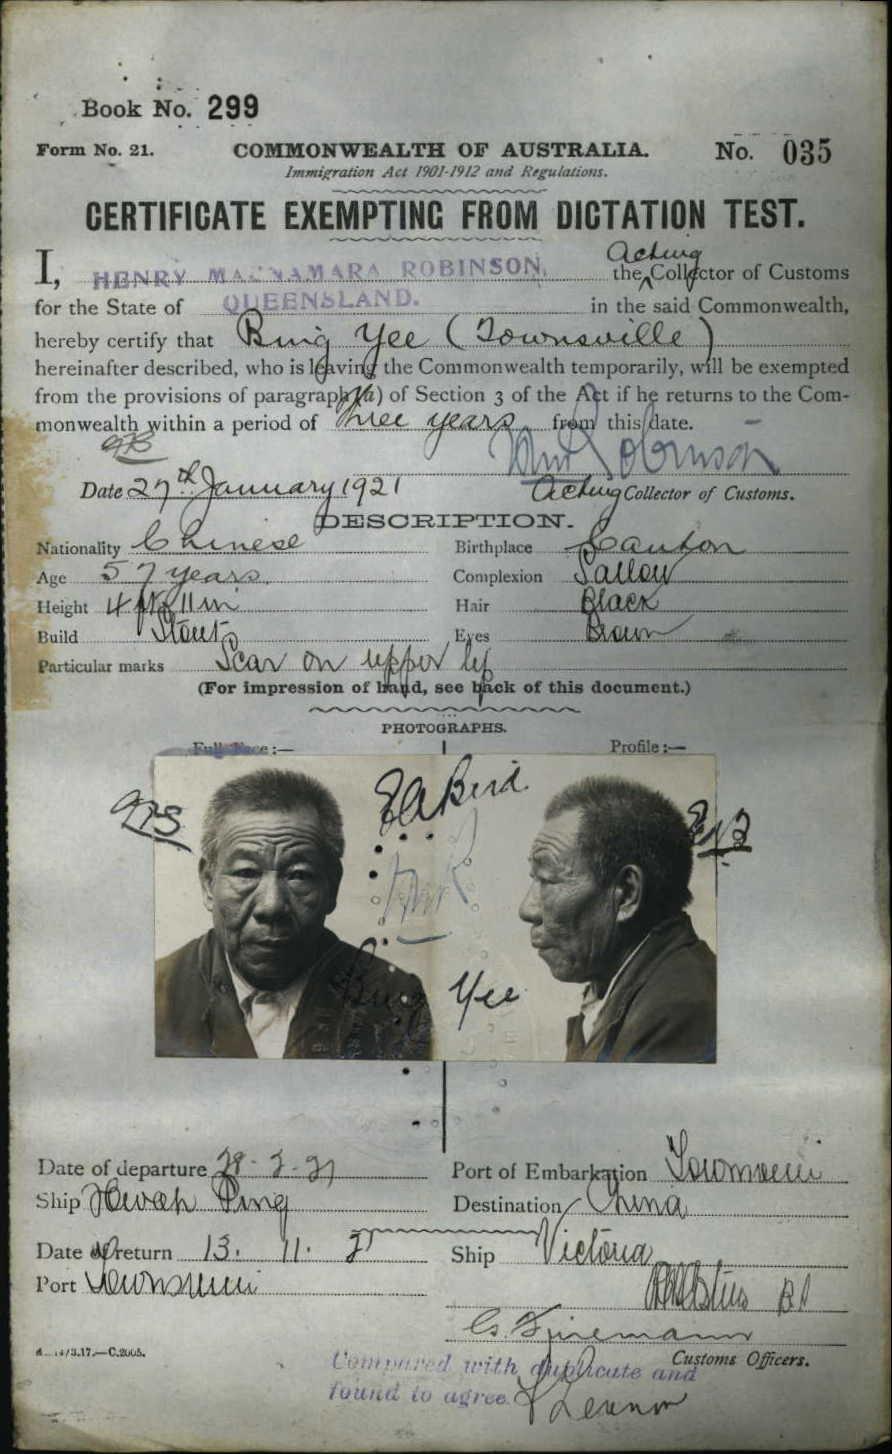 Book No. 299
Form No. 21. COMMONWEALTH OF AUSTRALIA. No. 035
Immigration Act 1901-1912 and Regulations.
CERTIFICATE EXEMPTING FROM DICTATION TEST.
I, HENRY MACNAMARA ROBINSON, the Acting Collector of Customs
for the State of QUEENSLAND. in the said Commonwealth,
hereby certify that Bing Yee (Townsville)
hereinafter described, who is leaving the Commonwealth temporarily, will be exempted
from the provisions of paragraph (a) of Section 3 of the Act if he returns to the Com-
monwealth within a period of three years from this date.
Date 27th January 1921 Acting Collector of Customs.
DESCRIPTION.
Nationality Chinese Birthplace Canton
Age 57 years Complexion Sallow
Height 4 ft 11 in Hair Black
Build Stout Eyes Brown
Particular marks Scar on upper lip
(For impression of hand, see back of this document.)
PHOTOGRAPHS.
Full Face :— Profile :—
E A Bird
Bing Yee
Date of departure Port of Embarkation
Ship Hwah Ping Destination China
Date of return 13. 11. Ship Victoria
Port
Customs Officers.
Compared with duplicate and
found to agree